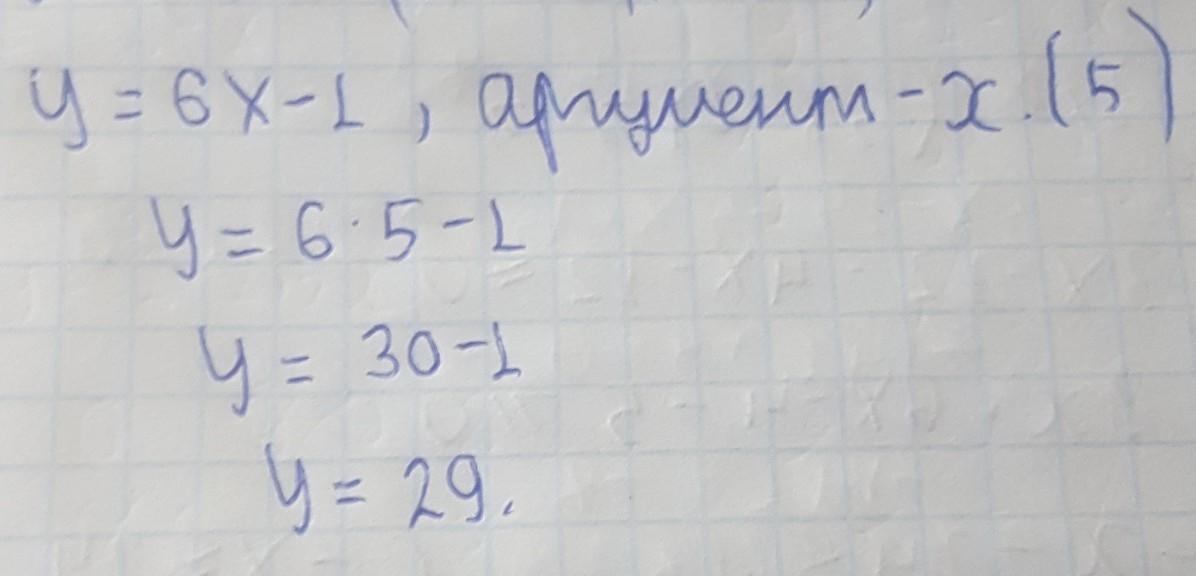 y = 6x - 1, аргумент - x. (5)
y = 6 · 5 - 1
y = 30 - 1
y = 29.